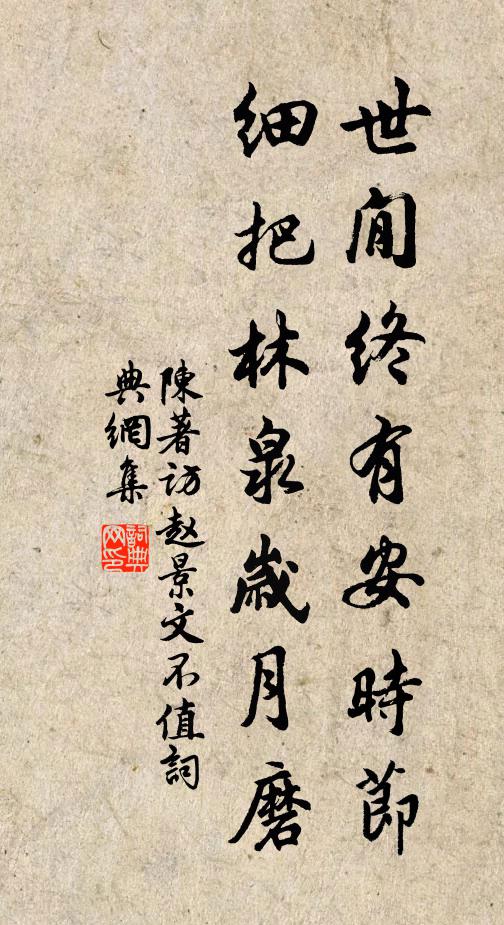 世間終有安時節
細把林泉歲月磨
陳著訪赵景文不值詞
典網集
詞典
网印